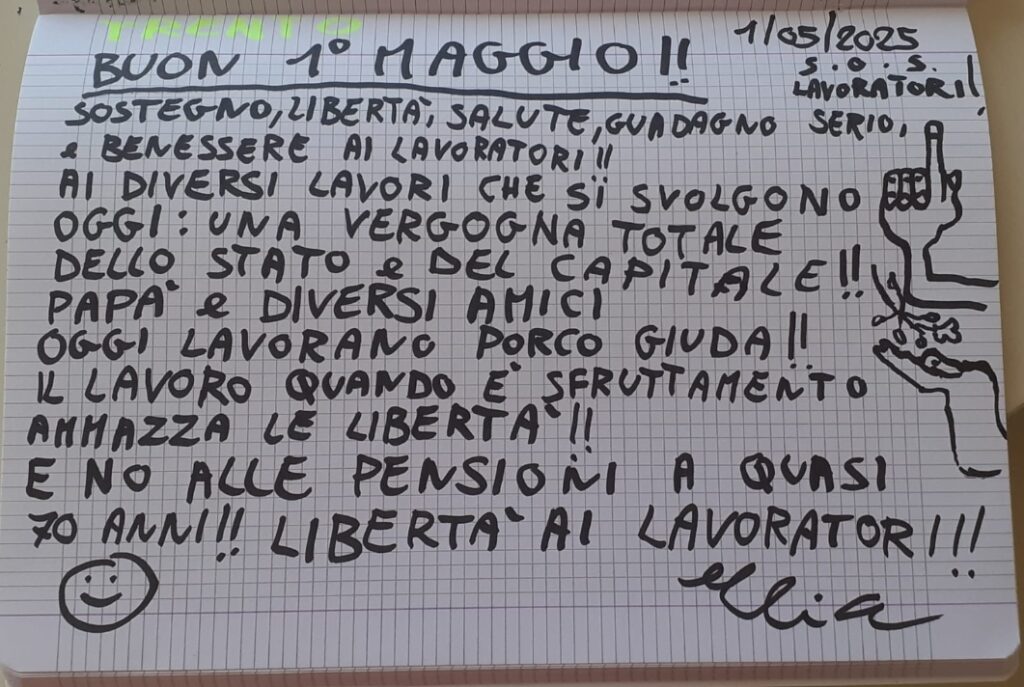 TRENTO
BUON 1° MAGGIO!!
1/05/2025
S.O.S.
LAVORATORI!
SOSTEGNO, LIBERTÀ, SALUTE, GUADAGNO SERIO,
e BENESSERE AI LAVORATORI!!
AI DIVERSI LAVORI CHE Si SVOLGONO
OGGI: UNA VERGOGNA TOTALE
DELLO STATO e DEL CAPITALE!!
PAPA' e DIVERSI AMICI
OGGI LAVORANO PORCO GIUDA!!
IL LAVORO QUANDO E' SFRUTTAMENTO
AMMAZZA LE LIBERTA'!!
E NO ALLE PENSIONI A QUASI
70 ANNI!! LIBERTA' AI LAVORATORI!!